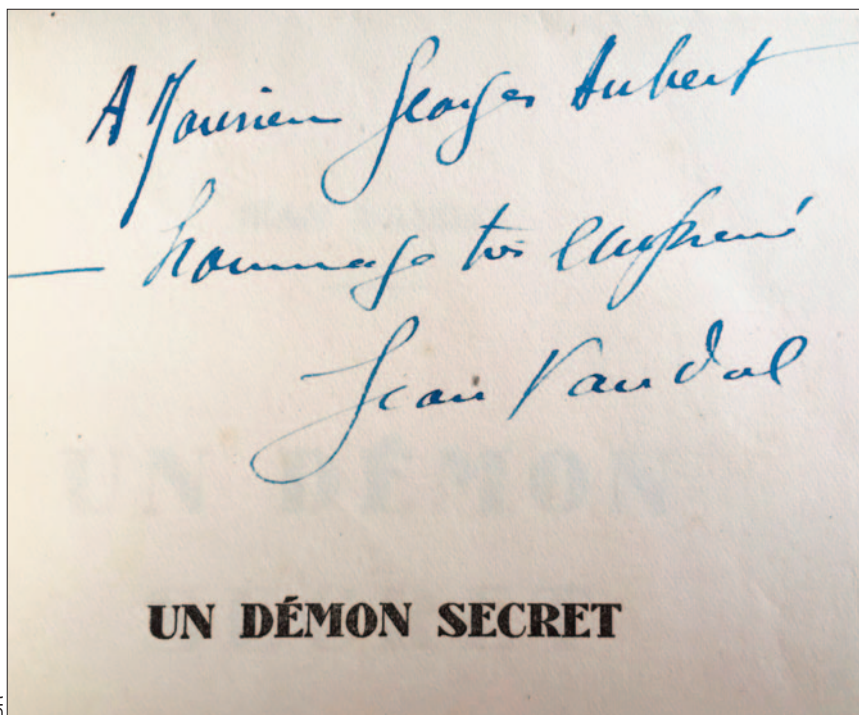 A Monsieur Georges Aubert
— hommage très empressé
Jean Vaudal
UN DÉMON
UN DÉMON SECRET